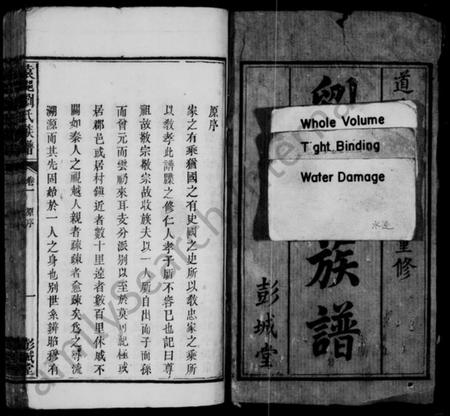 道
重修
劉
族譜
彭城堂
Whole Volume
Tight Binding
Water Damage
水边
原序
家之有乘猶國之有史國之史所以教忠家之乘所
以教孝此譜牒之修仁人孝子所不容已也記曰尊
祖故敬宗敬宗故收族夫以一祖所自出而子而孫
而曾元而雲礽來耳支分派別以至於莫可紀極或
居郡邑或居村鎮近者數十里遠者數百里休戚不
關如秦人之視越人親者疎疎者愈疎矣爲之尋流
溯源而其先固始於一人之身也別世系辨昭穆有
袁邑劉氏族譜
卷一
原序
一
彭城堂
FamilySearch International